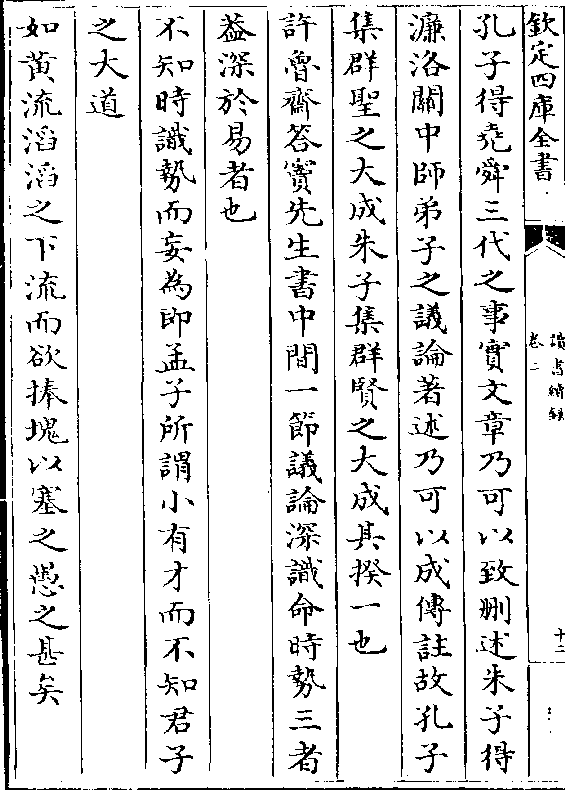 欽定四庫全書
讀書續錄
卷二
十二
孔子得堯舜三代之事實文章乃可以致刪述朱子得
濂洛關中師弟子之議論著述乃可以成傳註故孔子
集群聖之大成朱子集群賢之大成其揆一也
許魯齋答竇先生書中間一節議論深識命時勢三者
葢深於易者也
不知時識勢而妄為即孟子所謂小有才而不知君子
之大道
如黃流滔滔之下流而欲捧塊以塞之愚之甚矣